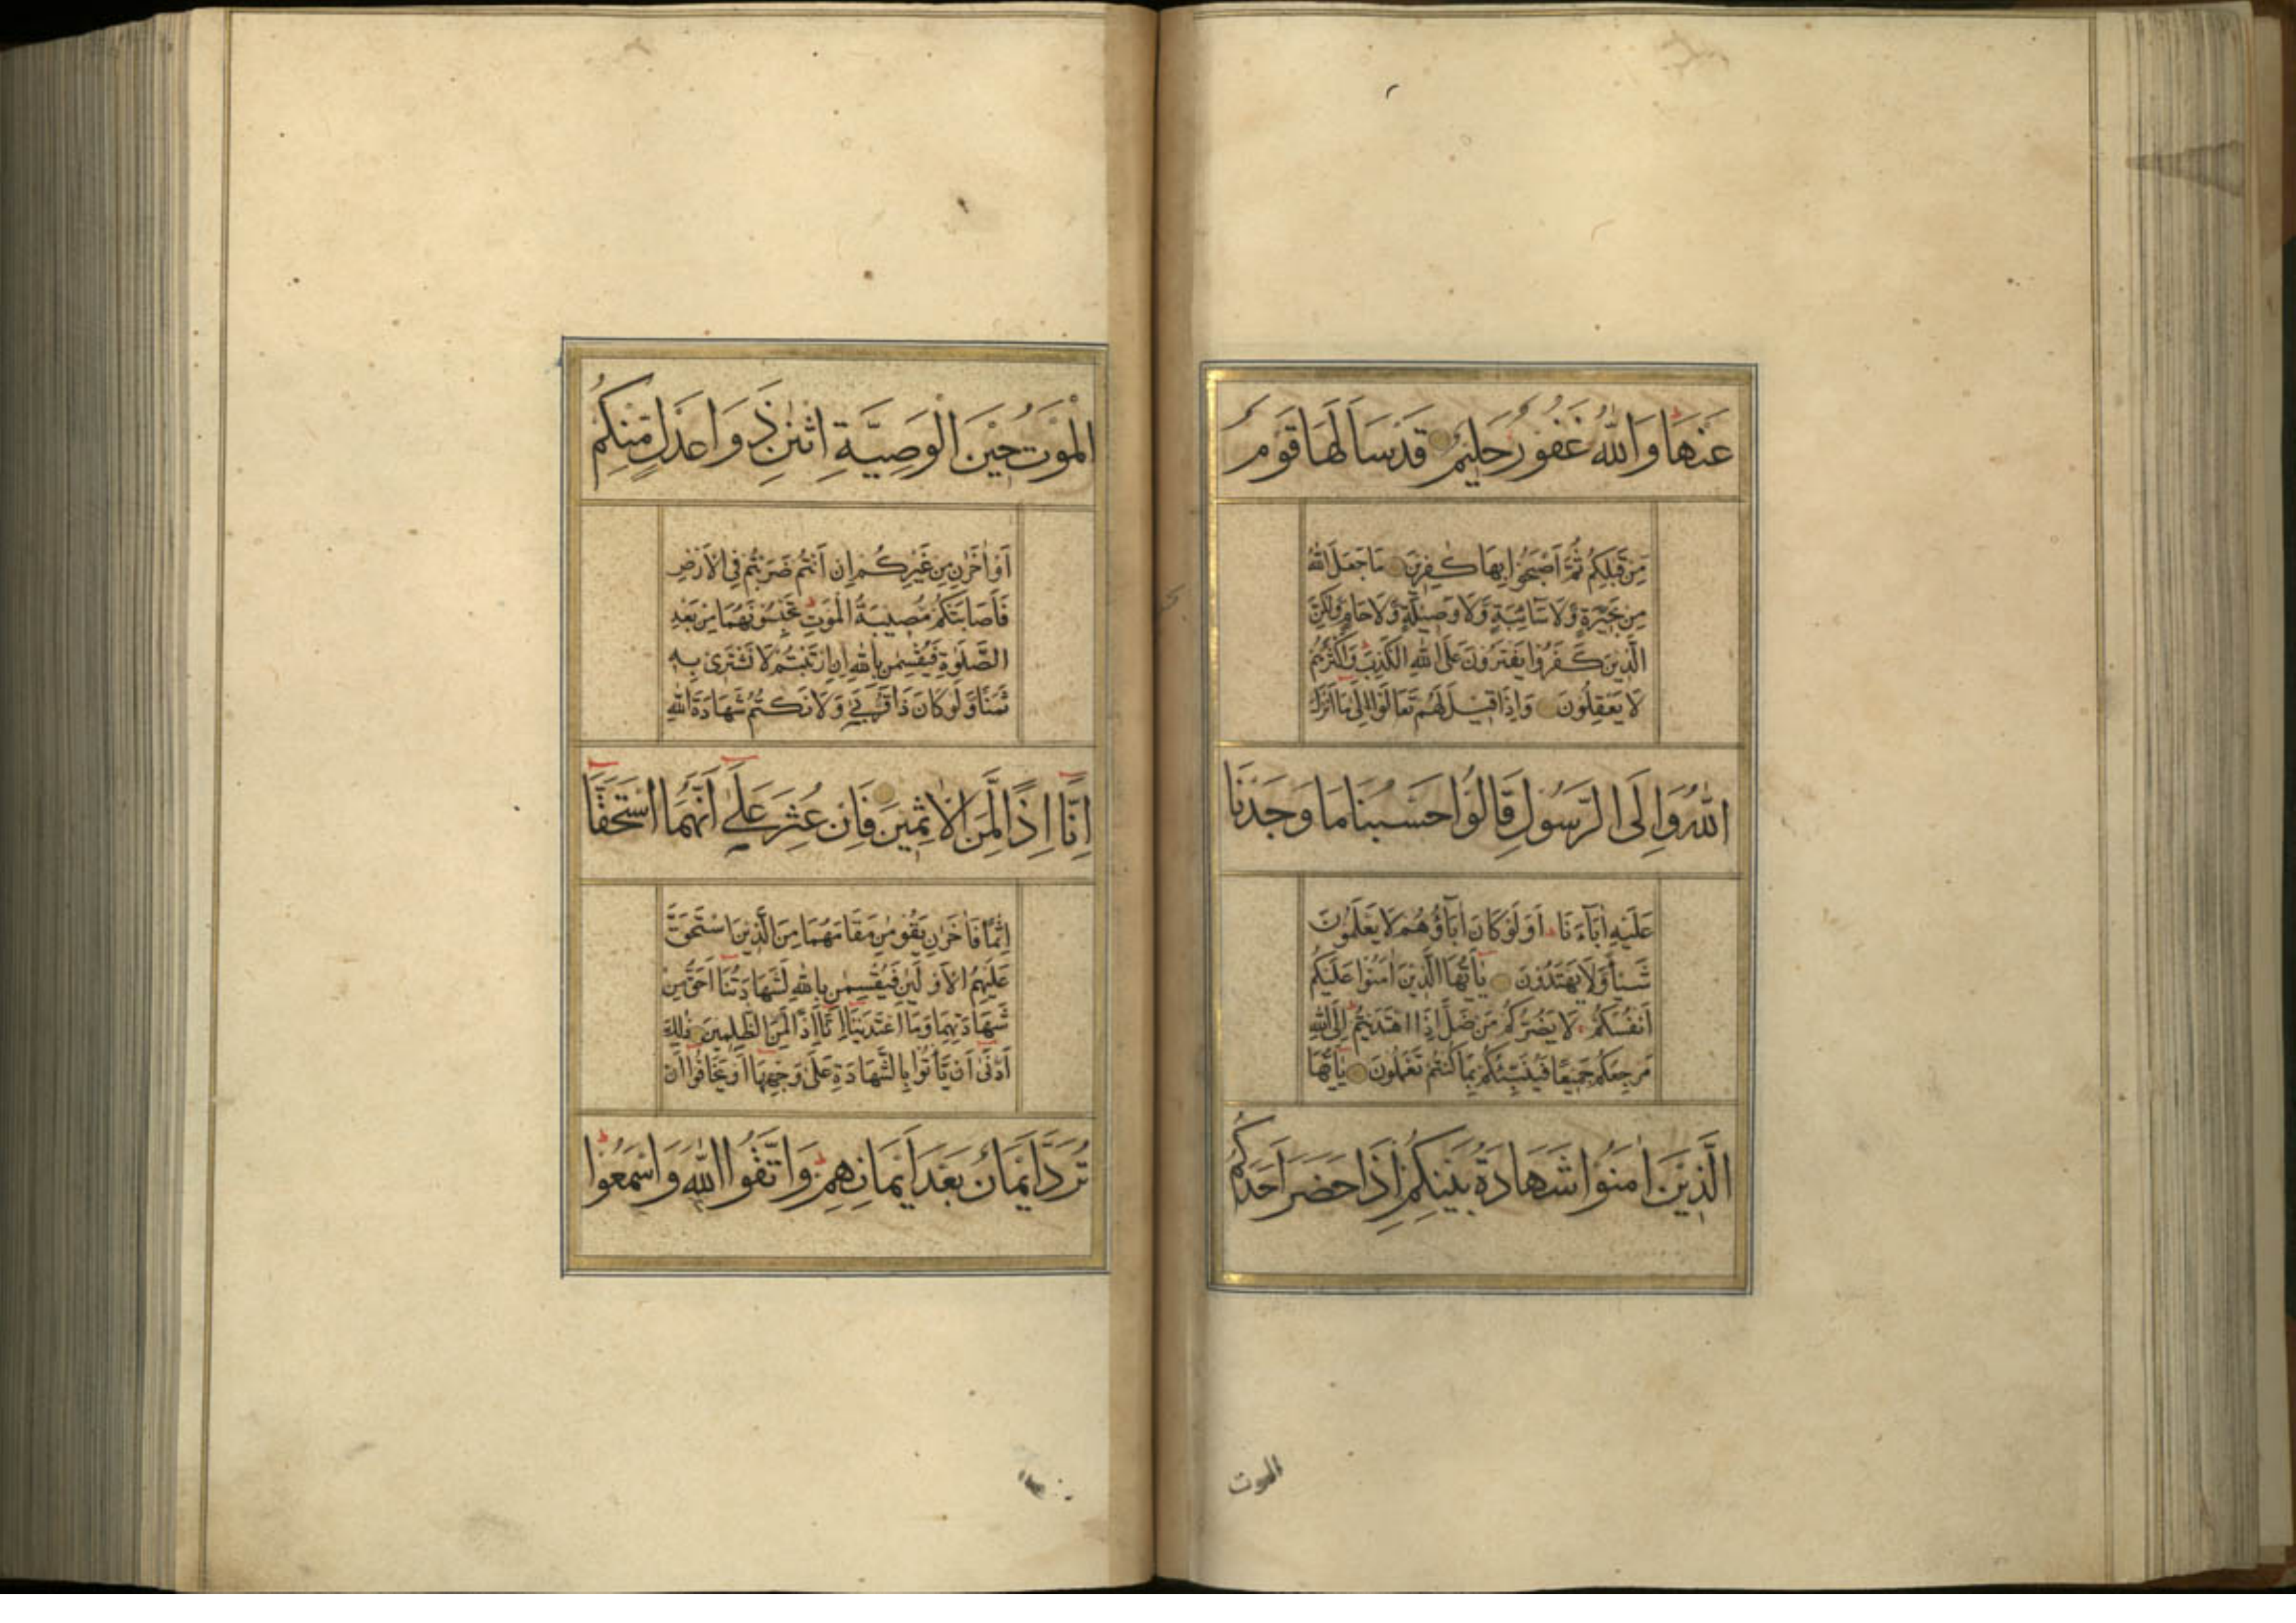 عَنْهَا وَاللّٰهُ غَفُورٌ حَلِيمٌ قَدْ سَاَلَهَا قَوْمٌ
مِنْ قَبْلِكُمْ ثُمَّ اَصْبَحُوا بِهَا كٰفِرِينَ مَا جَعَلَ اللّٰهُ
مِنْ بَحِيرَةٍ وَّلَا سَآئِبَةٍ وَّلَا وَصِيلَةٍ وَّلَا حَامٍ وَّلٰكِنَّ
الَّذِينَ كَفَرُوا يَفْتَرُونَ عَلَى اللّٰهِ الْكَذِبَ وَاَكْثَرُهُمْ
لَا يَعْقِلُونَ وَاِذَا قِيلَ لَهُمْ تَعَالَوْا اِلٰى مَا اَنْزَلَ
اللّٰهُ وَاِلَى الرَّسُولِ قَالُوا حَسْبُنَا مَا وَجَدْنَا
عَلَيْهِ اٰبَآءَنَا اَوَلَوْ كَانَ اٰبَآؤُهُمْ لَا يَعْلَمُونَ
شَيْئًا وَّلَا يَهْتَدُونَ يٰاَيُّهَا الَّذِينَ اٰمَنُوا عَلَيْكُمْ
اَنْفُسَكُمْ لَا يَضُرُّكُمْ مَنْ ضَلَّ اِذَا اهْتَدَيْتُمْ اِلَى اللّٰهِ
مَرْجِعُكُمْ جَمِيعًا فَيُنَبِّئُكُمْ بِمَا كُنْتُمْ تَعْمَلُونَ يٰاَيُّهَا
الَّذِيْنَ اٰمَنُوْا شَهَادَةُ بَيْنِكُمْ اِذَا حَضَرَ اَحَدَكُمُ
الموت
الْمَوْتُ حِيْنَ الْوَصِيَّةِ اثْنٰنِ ذَوَا عَدْلٍ مِّنْكُمْ
اَوْ اٰخَرٰنِ مِنْ غَيْرِكُمْ اِنْ اَنْتُمْ ضَرَبْتُمْ فِي الْاَرْضِ
فَاَصَابَتْكُمْ مُّصِيبَةُ الْمَوْتِ تَحْبِسُونَهُمَا مِنْ بَعْدِ
الصَّلٰوةِ فَيُقْسِمٰنِ بِاللّٰهِ اِنِ ارْتَبْتُمْ لَا نَشْتَرِى بِهِ
ثَمَنًا وَّلَوْ كَانَ ذَا قُرْبٰى وَلَا نَكْتُمُ شَهَادَةَ اللّٰهِ
اِنَّا اِذًا لَّمِنَ الْاٰثِمِيْنَ فَاِنْ عُثِرَ عَلٰى اَنَّهُمَا اسْتَحَقَّا
اِثْمًا فَاٰخَرٰنِ يَقُومٰنِ مَقَامَهُمَا مِنَ الَّذِينَ اسْتَحَقَّ
عَلَيْهِمُ الْاَوْلَيٰنِ فَيُقْسِمٰنِ بِاللّٰهِ لَشَهَادَتُنَا اَحَقُّ مِنْ
شَهَادَتِهِمَا وَمَا اعْتَدَيْنَا اِنَّا اِذًا لَّمِنَ الظّٰلِمِينَ ذٰلِكَ
اَدْنٰى اَنْ يَّاْتُوا بِالشَّهَادَةِ عَلٰى وَجْهِهَا اَوْ يَخَافُوا اَنْ
تُرَدَّ اَيْمَانٌ بَعْدَ اَيْمَانِهِمْ وَاتَّقُوا اللّٰهَ وَاسْمَعُوْا